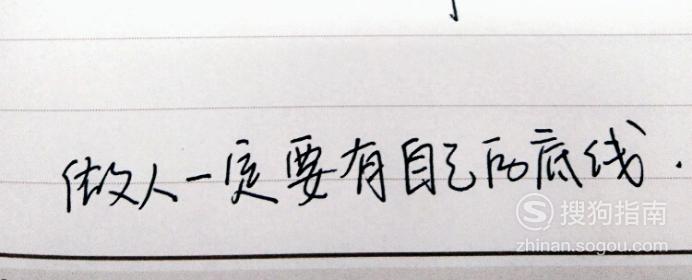 做人一定要有自己的底线.
搜狗指南
zhinan.sogou.com